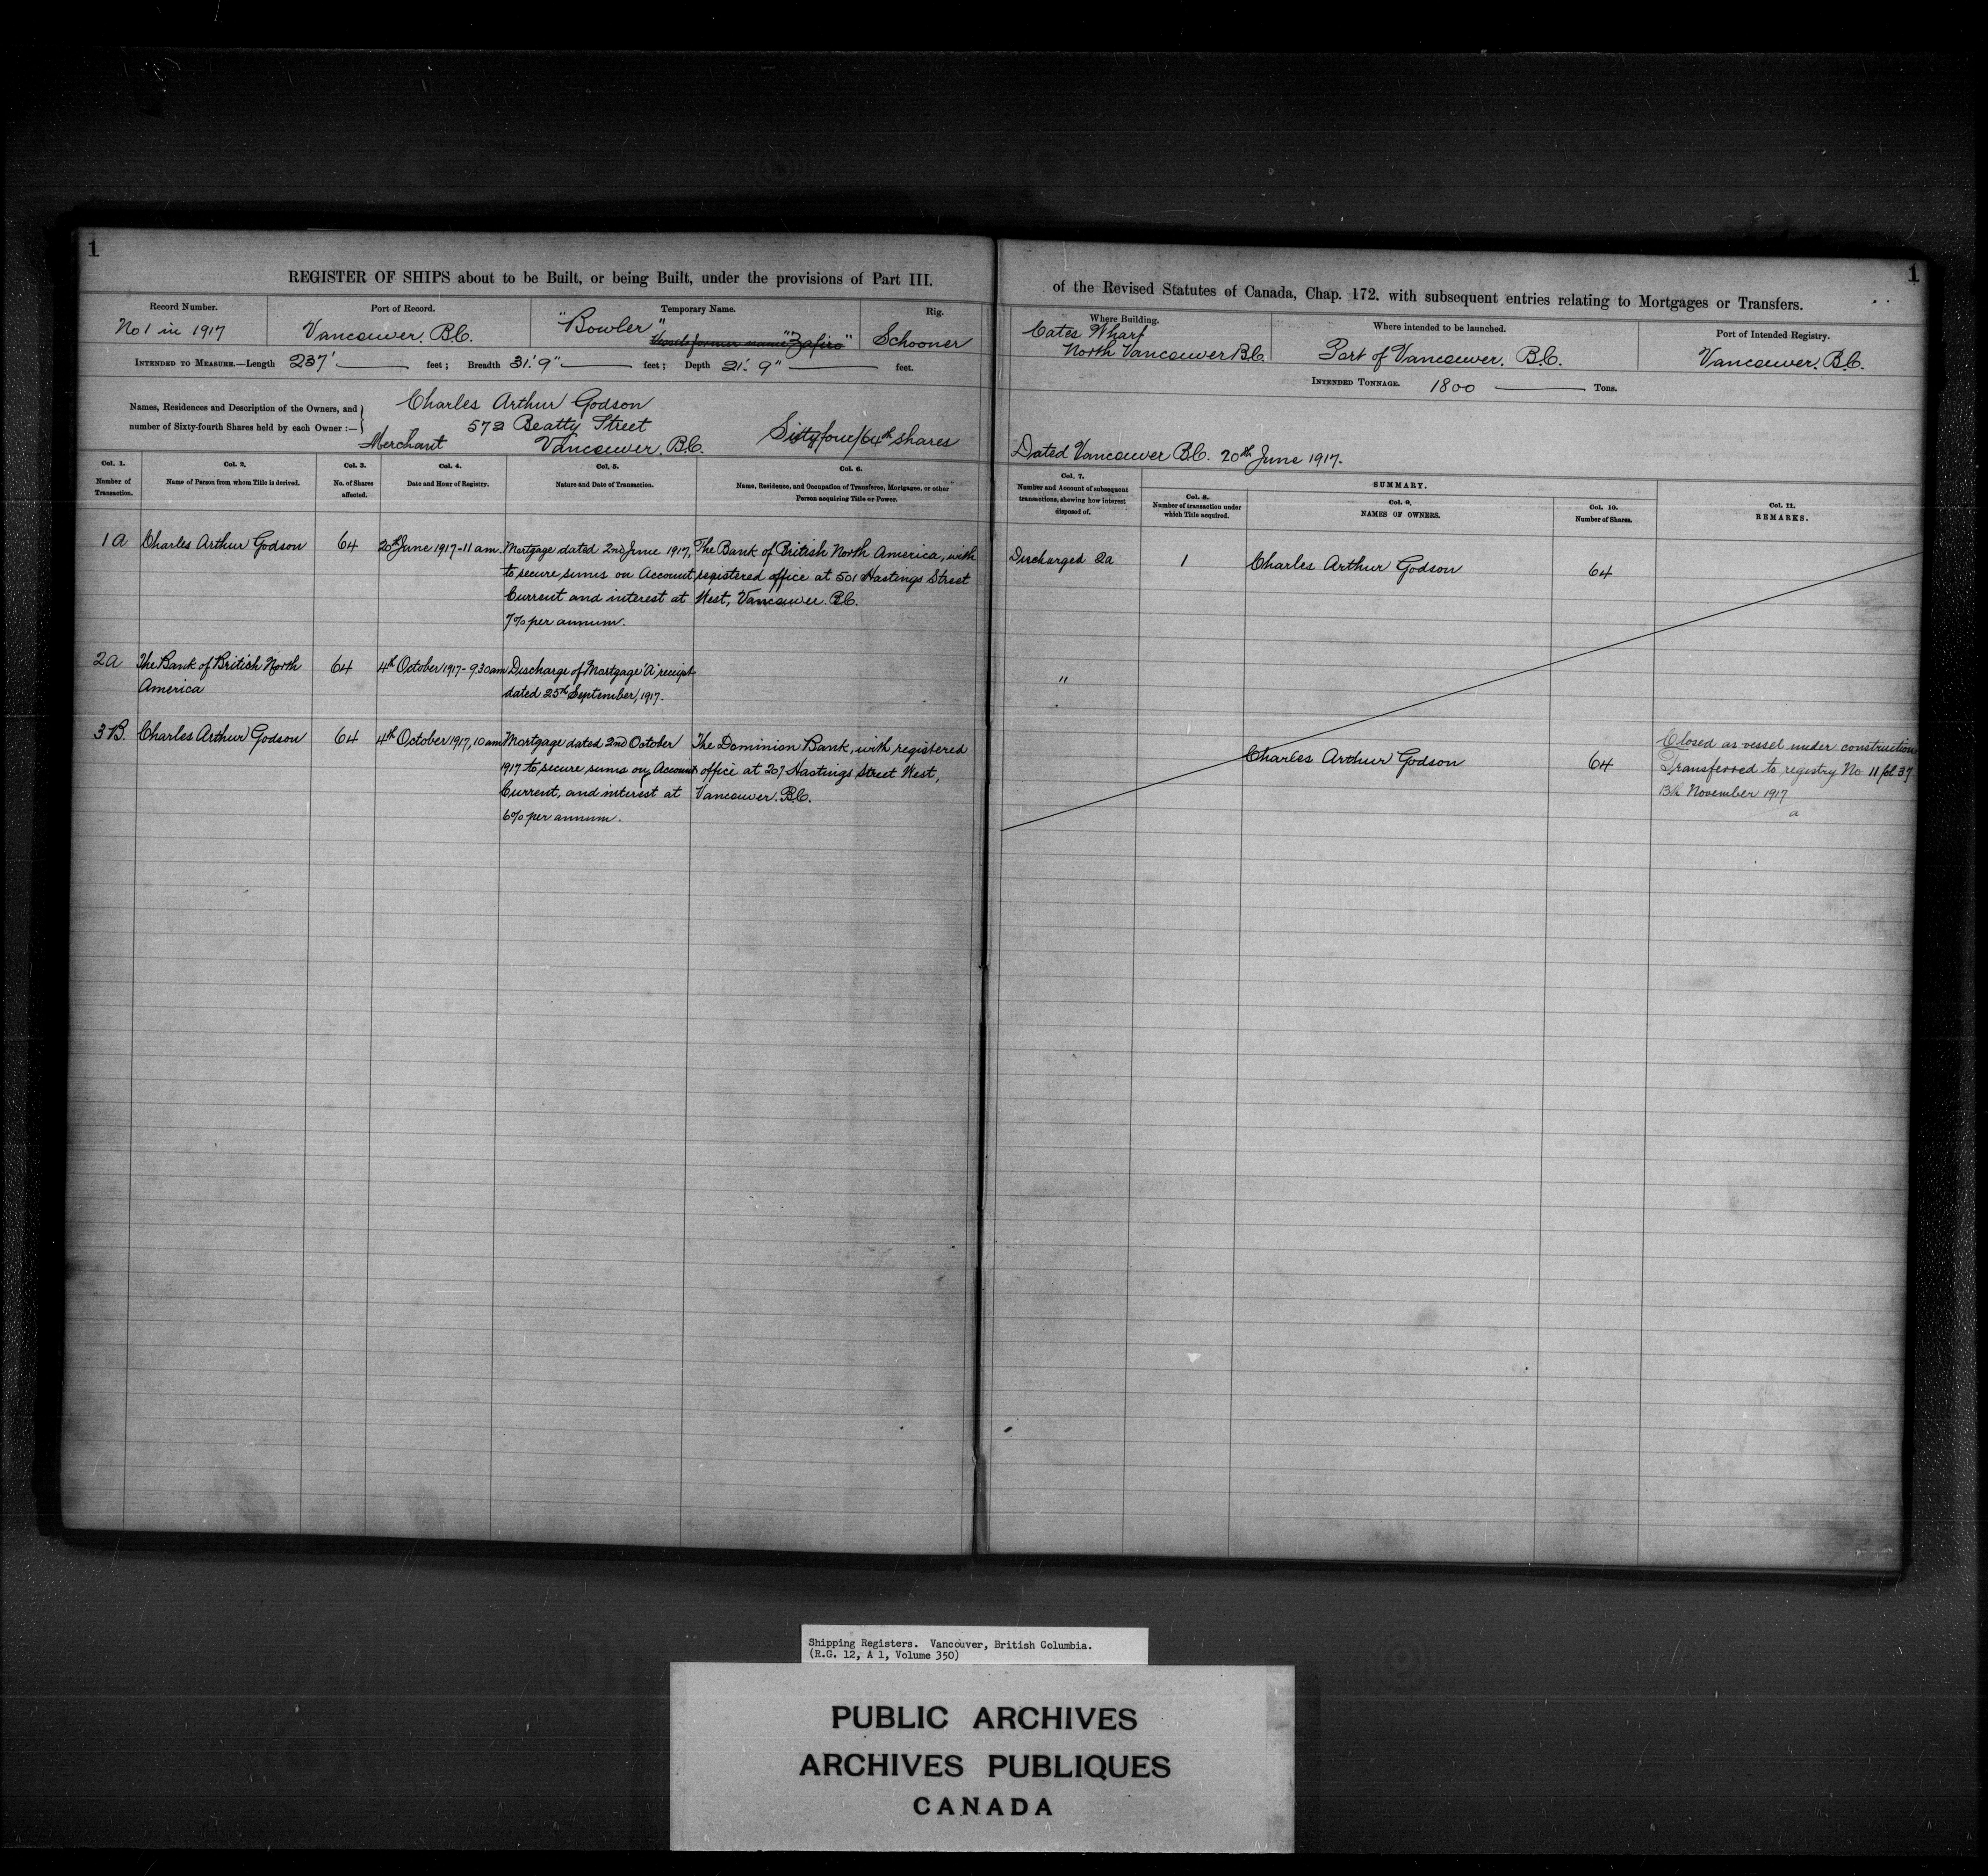 1
REGISTER OF SHIPS about to be Built, or being Built, under the provisions of Part III.
Record Number.
No 1 in 1917
Port of Record.
Vancouver. B.C.
Temporary Name.
"Bowler"
former name "Zafiro"
Rig.
Schooner
INTENDED TO MEASURE.—Length 237' feet; Breadth 31'. 9" feet; Depth 21'. 9" feet.
Names, Residences and Description of the Owners, and
number of Sixty-fourth Shares held by each Owner :—
Charles Arthur Godson
572 Beatty Street
Merchant Vancouver. B.C.
Sixtyfour/64th shares
Col. 1.
Number of
Transaction.
Col. 2.
Name of Person from whom Title is derived.
Col. 3.
No. of Shares
affected.
Col. 4.
Date and Hour of Registry.
Col. 5.
Nature and Date of Transaction.
Col. 6.
Name, Residence, and Occupation of Transferee, Mortgagee, or other
Person acquiring Title or Power.
1A
Charles Arthur Godson
64
20th June 1917-11 am.
Mortgage dated 2nd June 1917,
to secure sums on Account
Current and interest at
7% per annum.
The Bank of British North America, with
registered office at 501 Hastings Street
West, Vancouver. B.C.
2a
The Bank of British North
America
64
4th October 1917- 9.30am
Discharge of Mortgage "A" receipt
dated 25th September, 1917.
3 B.
Charles Arthur Godson
64
4th October 1917, 10 am
Mortgage dated 2nd October
1917 to secure sums on Account
Current, and interest at
6% per annum.
The Dominion Bank, with registered
office at 207 Hastings Street West,
Vancouver. B.C.
1
of the Revised Statutes of Canada, Chap. 172. with subsequent entries relating to Mortgages or Transfers.
Where Building.
Cates Wharf
North Vancouver B.C.
Where intended to be launched.
Port of Vancouver. B.C.
Port of Intended Registry.
Vancouver. B.C.
INTENDED TONNAGE. 1800 Tons.
Dated Vancouver B.C. 20th June 1917.
Col. 7.
Number and Account of subsequent
transactions, shewing how interest
disposed of.
SUMMARY.
Col. 8.
Number of transaction under
which Title acquired.
Col. 9.
NAMES OF OWNERS.
Col. 10.
Number of Shares.
Col. 11.
REMARKS.
Discharged 2a
1
Charles Arthur Godson
64
"
Charles Arthur Godson
64
Closed as vessel under construction
Transferred to registry No 11 fol 37
13th November 1917
a
Shipping Registers. Vancouver, British Columbia.
(R.G. 12, A 1, Volume 350)
PUBLIC ARCHIVES
ARCHIVES PUBLIQUES
CANADA